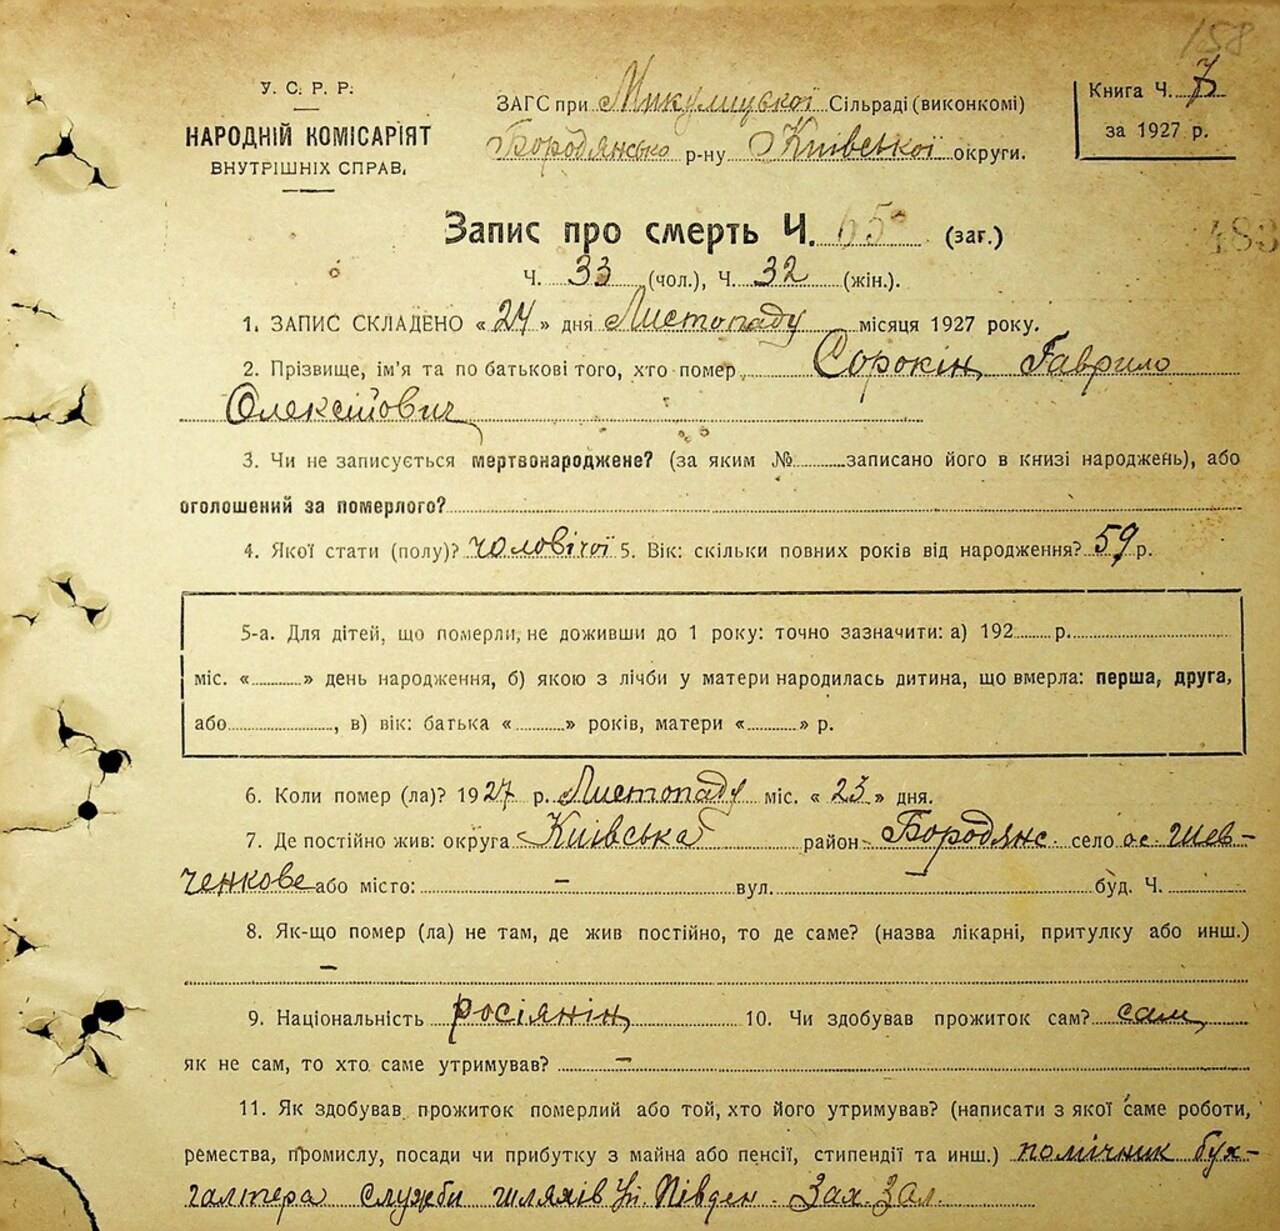 158
У. С. Р. Р.
НАРОДНІЙ КОМІСАРІЯТ
ВНУТРІШНІХ СПРАВ.
ЗАГС при Микулицької Сільраді (виконкомі)
Бородянсько р-ну Київської округи.
Книга Ч. 7
за 1927 р.
Запис про смерть Ч. 65 (заг.)
483
Ч. 33 (чол.), Ч. 32 (жін.).
1. ЗАПИС СКЛАДЕНО « 24 » дня Листопаду місяця 1927 року.
2. Прізвище, ім'я та по батькові того, хто помер Сорокін Гаврило
Олексійович
3. Чи не записується мертвонароджене? (за яким № записано його в книзі народжень), або
оголошений за померлого?
4. Якої стати (полу)? чоловічої 5. Вік: скільки повних років від народження? 59 р.
5-а. Для дітей, що померли, не доживши до 1 року: точно зазначити: а) 192 р.
міс. « » день народження, б) якою з лічби у матери народилась дитина, що вмерла: перша, друга,
або , в) вік: батька « » років, матери « » р.
6. Коли помер (ла)? 1927 р. Листопаду міс. « 23 » дня.
7. Де постійно жив: округа Київська район Бородянс. село ос. Шев-
ченкове або місто: – вул. буд. Ч.
8. Як-що помер (ла) не там, де жив постійно, то де саме? (назва лікарні, притулку або инш.)
–
9. Національність росіянін 10. Чи здобував прожиток сам? сам
як не сам, то хто саме утримував? –
11. Як здобував прожиток померлий або той, хто його утримував? (написати з якої саме роботи,
ремества, промислу, посади чи прибутку з майна або пенсії, стипендії та инш.) помічник бух-
галтера служби шляхів Півден. Зах. Зал.